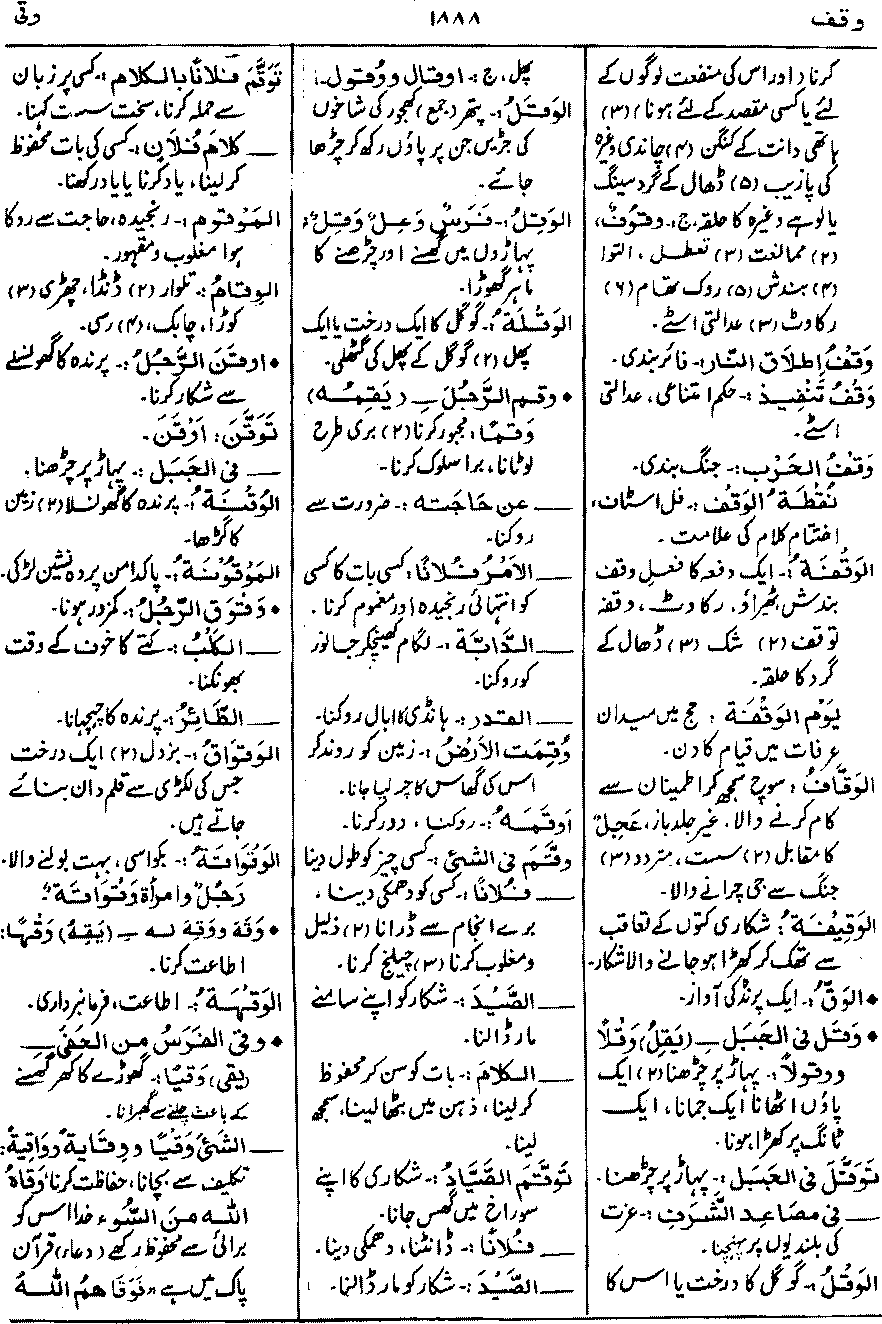 وقف
۱۸۸۸
وقی
کرنا (اور اس کی منفعت لوگوں کے
لئے یا کسی مقصد کے لئے ہونا) (۳)
ہاتھی دانت کے کنگن (۴) چاندی وغیرہ
کی پازیب (۵) ڈھال کے گرد سینگ
یا لوہے وغیرہ کا حلقہ، ج:۔ وقوفٌ،
(۲) ممانعت (۳) تعطل، التوا
(۴) بندش (۵) روک تھام (۶)
رکاوٹ (۳) عدالتی اسٹے۔
وَقْفُ اِطلاق النّار:۔ فائر بندی۔
وَقْفُ تَنْفِیذ:۔ حکم امتناعی، عدالتی
اسٹے۔
وَقْفُ الحَرْب:۔ جنگ بندی۔
نُقْطَةُ الوَقْف:۔ فل اسٹاپ،
اختتام کلام کی علامت۔
الوَقْفَةُ:۔ ایک دفعہ کا فعلِ وقف
بندش ٹھیراؤ، رکاوٹ، وقفہ
توقف (۲) شک (۳) ڈھال کے
گرد کا حلقہ۔
یَوْم الوَقْفَة: حج میں میدان
عرفات میں قیام کا دن۔
الوَقَّافُ: سوچ سمجھ کر اطمینان سے
کام کرنے والا، غیر جلد باز، عَجِلٌ
کا مقابل (۲) سست، متردد (۳)
جنگ سے جی چرانے والا۔
الوَقِیْفَةُ: شکاری کتوں کے تعاقب
سے تھک کر کھڑا ہو جانے والا شکار۔
• الوَقُّ:۔ ایک پرند کی آواز۔
• وَقَل فی الجَبَل ـِ (یَقِلُ) وَقْلاً
ووقولاً:۔ پہاڑ پر چڑھنا (۲) ایک
پاؤں اٹھانا ایک جمانا، ایک
ٹانگ پر کھڑا ہونا۔
تَوَقَّلَ فی الجَبَل:۔ پہاڑ پر چڑھنا۔
ــــ فی مصَاعِد الشَّرَفِ:۔ عزت
کی بلندیوں پر پہنچنا۔
الوَقْلُ:۔ گوگل کا درخت یا اس کا
پھل، ج:۔ اوقال ووقول۔
الوَقَلُ:۔ پتھر (جمع) کھجور کی شاخوں
کی جڑیں جن پر پاؤں رکھ کر چڑھا
جائے۔
الوَقِلُ:۔ فَرَسٌ وَعِلٌ وَقِلٌ:
پہاڑوں میں گھسنے اور چڑھنے کا
ماہر گھوڑا۔
الوَقْلَةُ:۔ گوگل کا ایک درخت یا ایک
پھل (۲) گوگل کے پھل کی گٹھلی۔
• وقم الرَّجُلَ ـِ (یَقِمُه)
وَقْمًا: مجبور کرنا (۲) بری طرح
لوٹانا، برا سلوک کرنا۔
ــــ عن حَاجَته:۔ ضرورت سے
روکنا۔
ــــ الاَمْرُ فلانًا: کسی بات کا کسی
کو انتہائی رنجیدہ اور مغموم کرنا۔
ــــ الدَّابَّة:۔ لگام کھینچکر جانور
کو روکنا۔
ــــ القدر:۔ ہانڈی کا ابال روکنا۔
وُقِمَت الاَرْضُ:۔ زمین کو روند کر
اس کی گھاس کا چر لیا جانا۔
اَوقَمَهُ:۔ روکنا، دور کرنا۔
وقَّمَ فی الشئ:۔ کسی چیز کو طول دینا
ــــ فُلانًا:۔ کسی کو دھمکی دینا،
برے انجام سے ڈرانا (۲) ذلیل
و مغلوب کرنا (۳) چیلنج کرنا۔
ــــ الصَّیْدَ:۔ شکار کو اپنے سامنے
مار ڈالنا۔
ــــ الکلامَ:۔ بات کو سن کر محفوظ
کر لینا، ذہن میں بٹھا لینا، سمجھ
لینا۔
تَوَقَّمَ الصَّیّادُ:۔ شکاری کا اپنے
سوراخ میں گھس جانا۔
ــــ فُلانًا:۔ ڈانٹنا، دھمکی دینا۔
ــــ الصَّیْدَ:۔ شکار کو مار ڈالنا۔
تَوَقَّمَ فلانًا بالکلام:۔ کسی پر زبان
سے حملہ کرنا، سخت سست کہنا۔
ــــ کلامَ فُلانٍ:۔ کسی کی بات محفوظ
کر لینا، یاد کرنا یا یاد رکھنا۔
المَوْقوم:۔ رنجیدہ، حاجت سے روکا
ہوا مغلوب و مقہور۔
الوِقامُ:۔ تلوار (۲) ڈنڈا، چھڑی (۳)
کوڑا، چابک، (۴) رسی۔
• اوقَنَ الرَّجُلُ:۔ پرندہ کا گھونسلے
سے شکار کرنا۔
تَوَقَّنَ: اَوْقَنَ۔
ــــ فی الجَبَل:۔ پہاڑ پر چڑھنا۔
الوُقْنَةُ:۔ پرندہ کا گھونسلا (۲) زمین
کا گڑھا۔
المَوْقُوْنَةُ:۔ پاکدامن پردہ نشین لڑکی۔
• وَقْوَقَ الرَّجُلُ:۔ کمزور ہونا۔
ــــ الکَلْبُ:۔ کتے کا خوف کے وقت
بھونکنا۔
ــــ الطَّائِرُ:۔ پرندہ کا چہچہانا۔
الوَقْوَاقُ:۔ بزدل (۲) ایک درخت
جس کی لکڑی سے قلم دان بنائے
جاتے ہیں۔
الوَقْوَاقَةُ:۔ بکواسی، بہت بولنے والا۔
رَجُلٌ وامرأة وَقْوَاقَة۔
• وَقَهَ ووَقِهَ له ـِ (یَقِهُ) وَقْهًا:
اطاعت کرنا۔
الوَقْهَةُ:۔ اطاعت، فرمانبرداری۔
• وقی الفَرَسُ مِن الحَفَی ـِ
(یقی) وَقْیًا:۔ گھوڑے کا کھر گھسنے
کے باعث چلنے سے گھبرانا۔
ــــ الشئَ وَقْیًا ووِقایَةً ووَاقِیةً:
تکلیف سے بچانا، حفاظت کرنا وَقَاهُ
اللّٰه مِنَ السُّوءِ خدا اس کو
برائی سے محفوظ رکھے (دعاء) قرآن
پاک میں ہے «فَوَقَاهُمُ اللّٰهُ